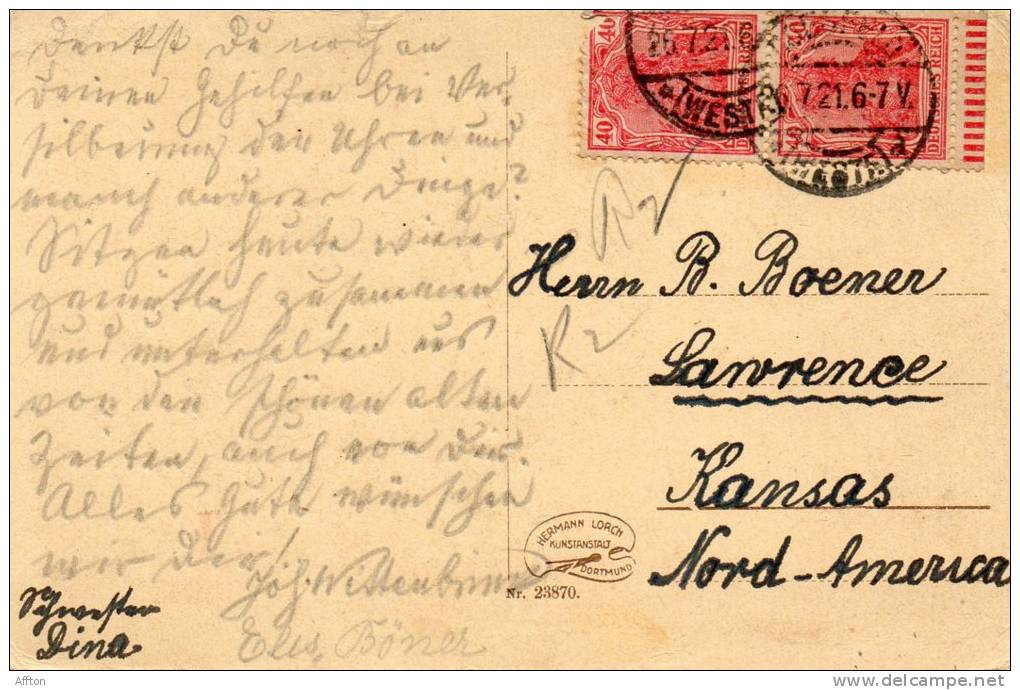 Denkst Du noch an
Deinen Gehilfen bei Ver-
silberung der Uhren und
manch anderer Dinge?
Sitzen heute wieder
gemütlich zusammen
und unterhalten uns
von den schönen alten
Zeiten, auch von Dir.
Alles Gute wünschen
wir Dir!
Joh. Wittenbrink
Böner
Schwester
Dina
40
40
DEUTSCHES REICH
26.7.21
(WEST
7.21.6-7 V.
R 2
Herrn B. Boemer
Lawrence
Kansas
Nord-America
HERMANN LORCH
KUNSTANSTALT
DORTMUND
Nr. 23870.
Afton
www.delcampe.net